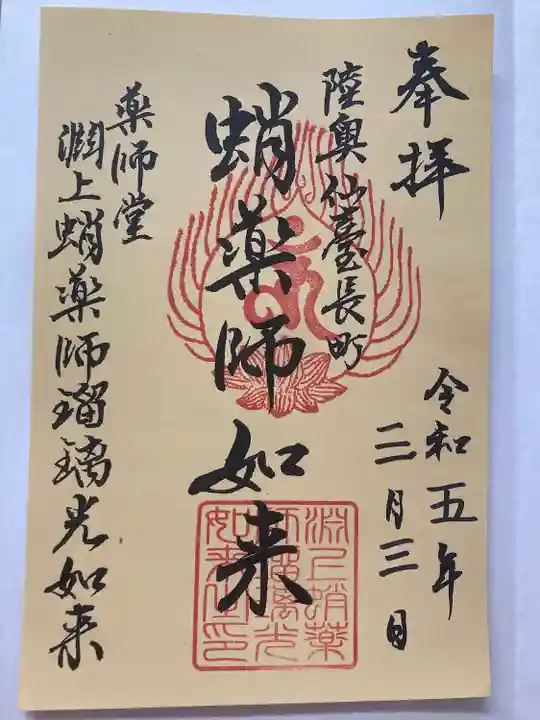 奉拝
令和五年
三月三日
陸奥仙臺長町
蛸薬師如来
薬師堂
淵上蛸薬師瑠璃光如来
淵上蛸薬
師瑠璃光
如来